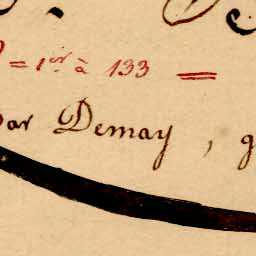 = 1er à 133 =
par Demay, g